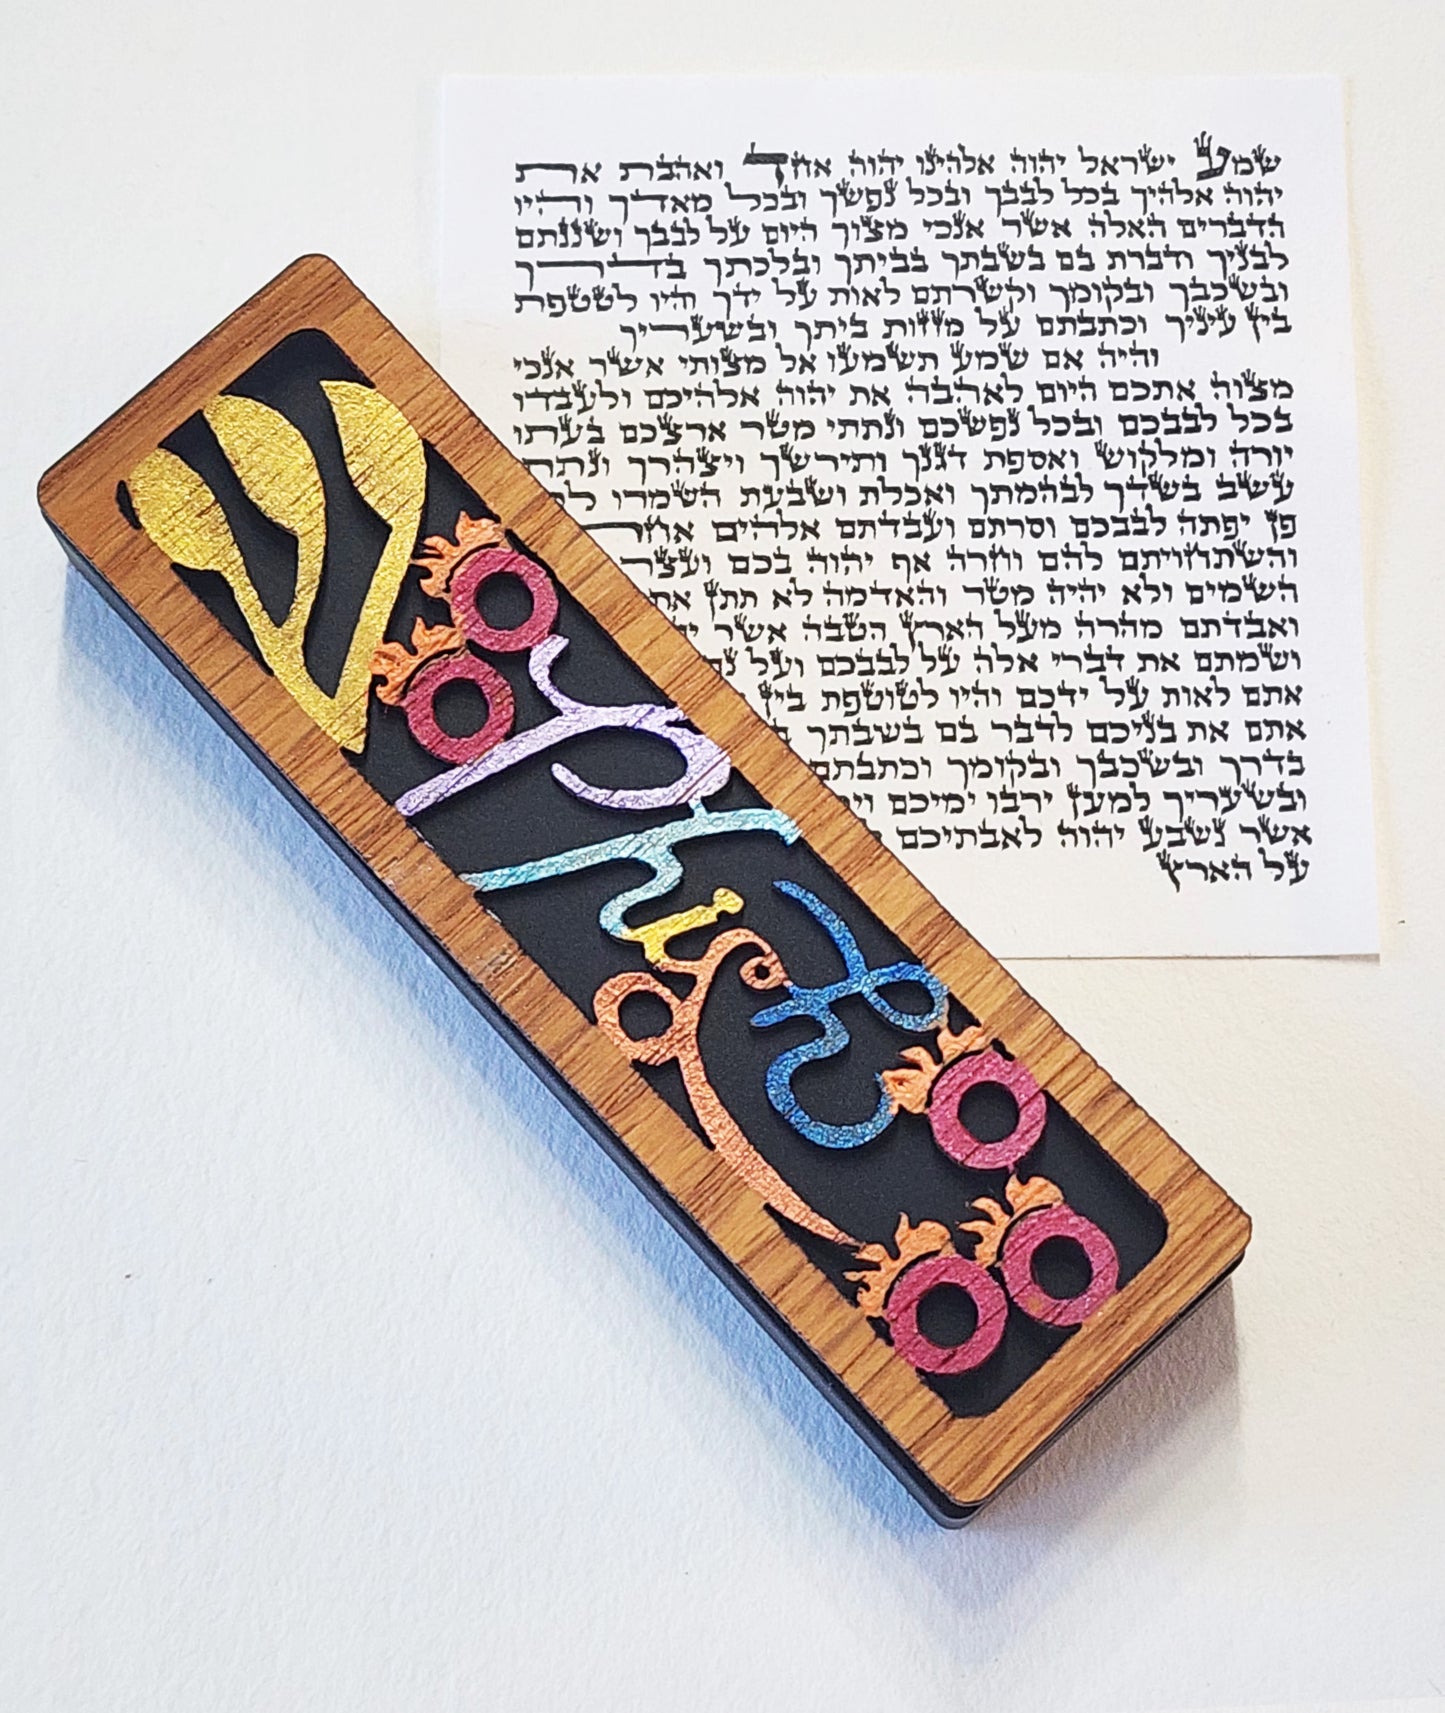 שמע ישראל יהוה אלהינו יהוה אחד ואהבת את
יהוה אלהיך בכל לבבך ובכל נפשך ובכל מאדך והיו
הדברים האלה אשר אנכי מצוך היום על לבבך ושננתם
לבניך ודברת בם בשבתך בביתך ובלכתך בדרך
ובשכבך ובקומך וקשרתם לאות על ידך והיו לטטפת
בין עיניך וכתבתם על מזזות ביתך ובשעריך
והיה אם שמע תשמעו אל מצותי אשר אנכי
מצוה אתכם היום לאהבה את יהוה אלהיכם ולעבדו
בכל לבבכם ובכל נפשכם ונתתי מטר ארצכם בעתו
יורה ומלקוש ואספת דגנך ותירשך ויצהרך
עשב בשדך לבהמתך ואכלת ושבעת השמרו
פן יפתה לבבכם וסרתם ועבדתם אלהים
והשתחויתם להם וחרה אף יהוה בכם ועצר
השמים ולא יהיה מטר והאדמה לא תתן את
ואבדתם מהרה מעל הארץ הטבה אשר
ושמתם את דברי אלה על לבבכם ועל
אתם לאות על ידכם והיו לטוטפת בין
אתם את בניכם לדבר בם בשבתך
בדרך ובשכבך ובקומך וכתבתם
ובשעריך למען ירבו ימיכם
אשר נשבע יהוה לאבתיכם
על הארץ
ש